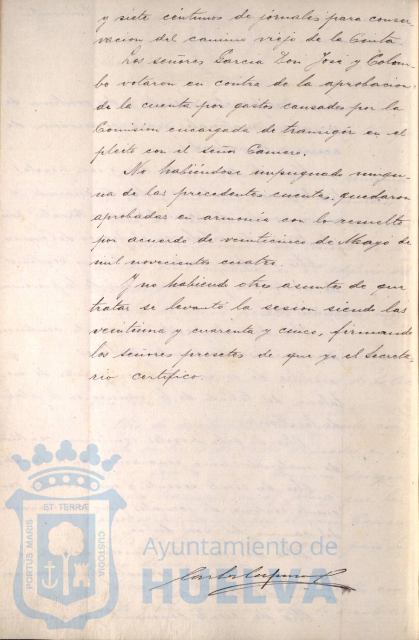 y siete céntimos de jornales para conser-
vacion del camino viejo de la Conta.
Los señores Garcia Don José y Colom-
bo votaron en contra de la aprobacion
de la cuenta por gastos causados por la
Comision encargada de transigir en el
pleito con el señor
No habiéndose impugnado ningu-
na de las precedentes cuentas, quedaron
aprobadas en armonia con lo resuelto
por acuerdo de veinticinco de Mayo de
mil novecientos cuatro.
Y no habiendo otros asuntos de que
tratar se levantó la sesion siendo las
veintiuna y cuarenta y cinco, firmando
los señores presetes de que yo el Secreta-
rio certifico.
PORTUS MARIS
ET TERRÆ
CUSTODIA
Ayuntamiento de
HUELVA